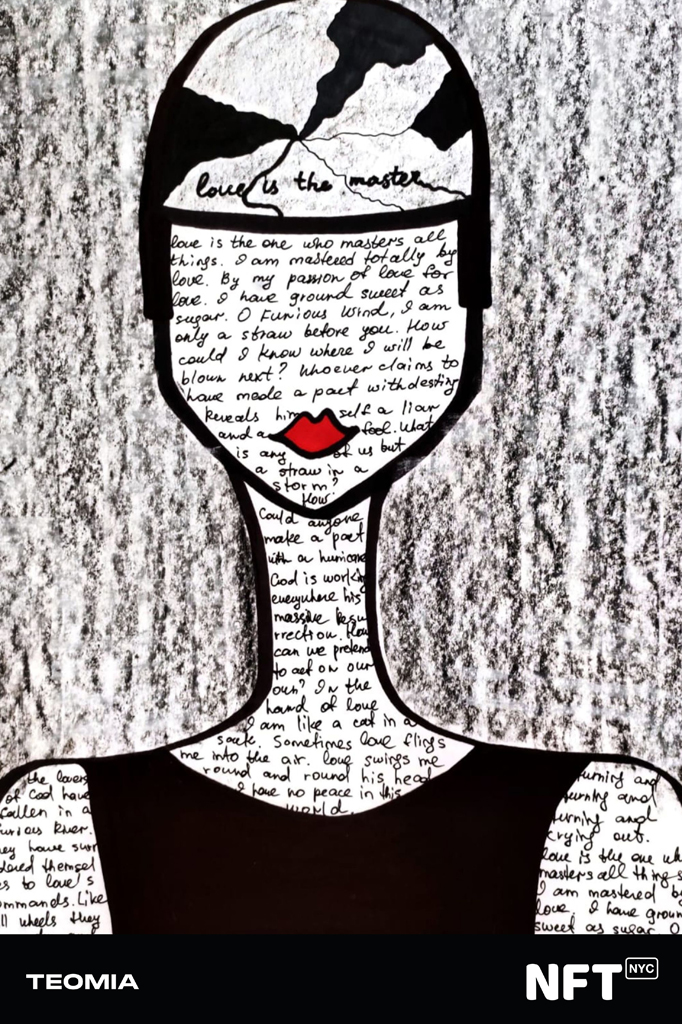 love is the master
love is the one who masters all
things. I am mastered totally by
love. By my passion of love for
love. I have ground sweet as
sugar. O Furious Wind, I am
only a straw before you. How
could I know where I will be
blown next? Whoever claims to
have made a pact with destiny
Reveals him self a liar
and a fool. What
is any of us but
a straw in a
storm?
How
Could anyone
make a pact
with a hurricane
God is working
everywhere his
massive Resu
rrection. How
can we pretend
to act on our
own? In the
hand of love
I am like a cat in a
sack. Sometimes love flings
me into the air. love swings me
round and round his head
I have no peace in this
world.
the lovers
of God have
fallen in a
furious River.
they have surr
dered themsel
es to love's
ommands. Like
ll wheels they
turning and
turning and
turning and
crying out.
love is the one wh
masters all things
I am mastered by
love. I have groun
sweet as sugar O
TEOMIA
NFT NYC